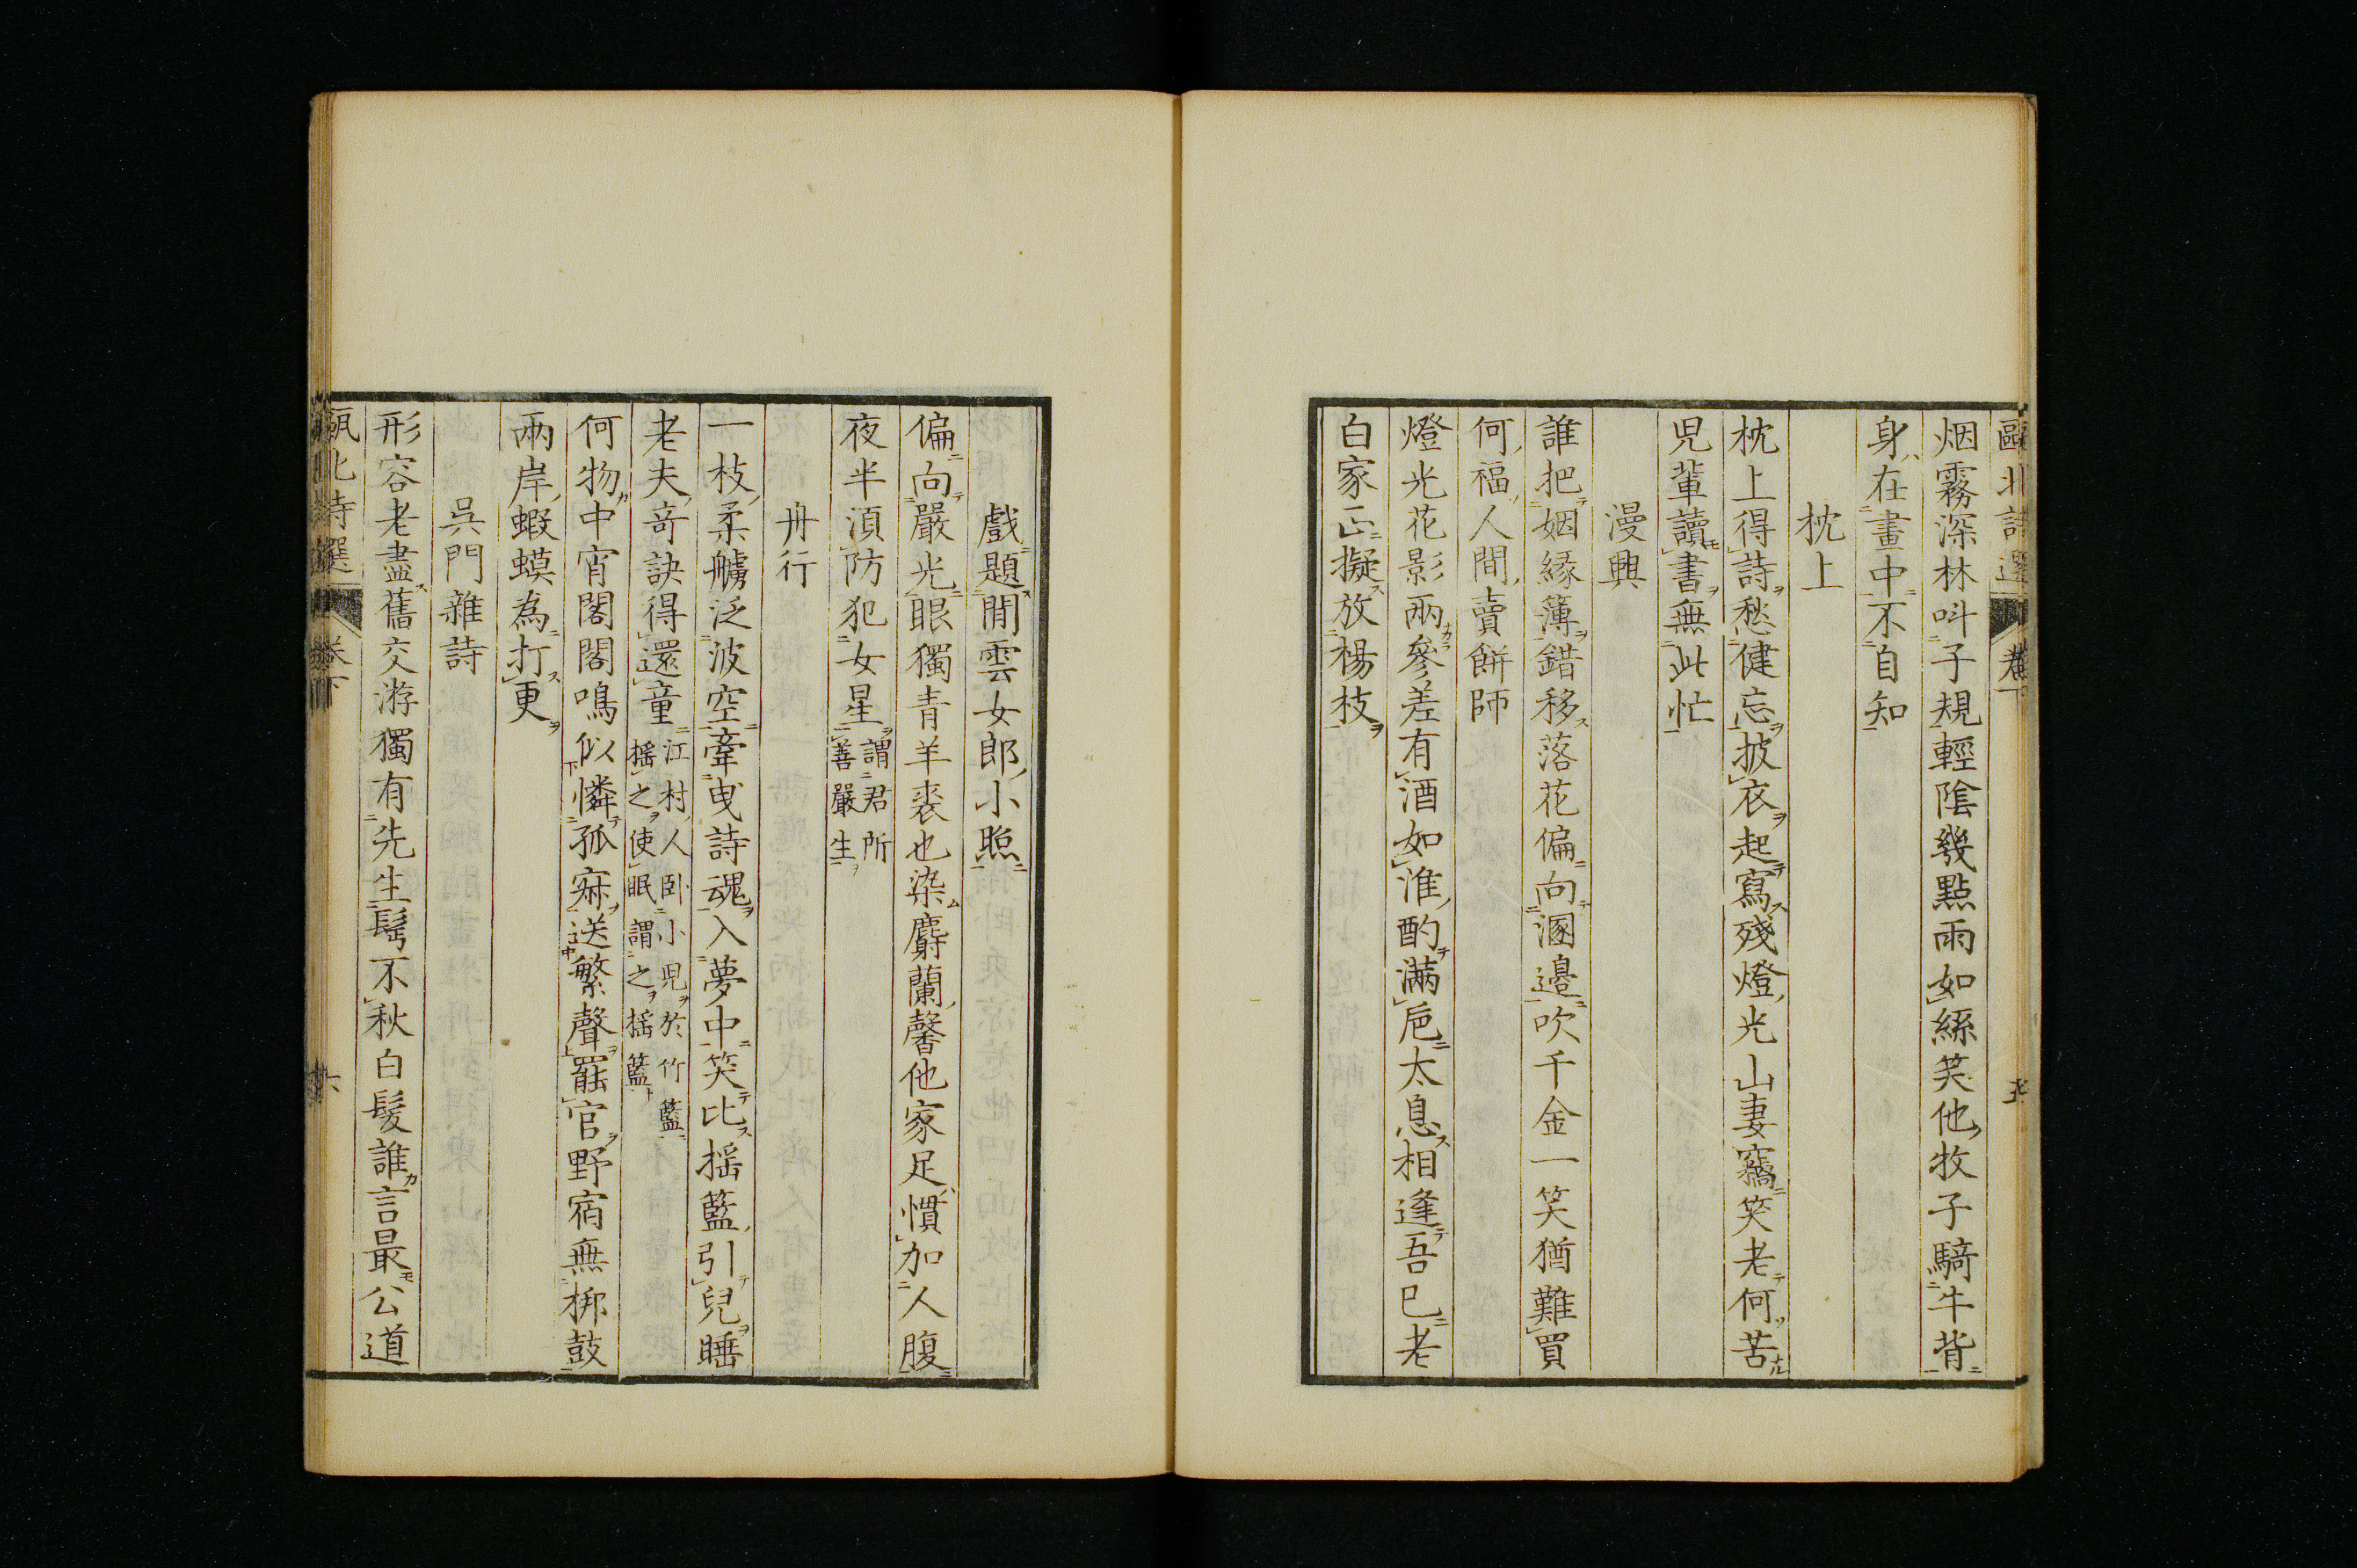 甌北詩選 卷下
烟霧深林叫子規輕陰幾點雨如絲笑他牧子騎牛背
身在畫中不自知
枕上
枕上得詩愁健忘披衣起寫殘燈光山妻竊笑老何苦
児輩讀書無此忙
漫興
誰把姻縁簿錯移落花偏向溷邉吹千金一笑猶難買
何福人間賣餅師
燈光花影兩參差有酒如淮酌滿巵太息相逢吾已老
白家正擬放楊枝
戲題閒雲女郎小照
偏向嚴光眼獨青羊裘也染麝蘭馨他家足慣加人腹
夜半湏防犯女星謂君所善嚴生
舟行
一枝柔艣泛波空牽曳詩魂入夢中笑比揺籃引兒睡
老夫奇訣得還童江村人卧小児於竹籃揺之使眠謂之揺籃
何物中宵閣閣鳴似憐孤寐送繁聲罷官野宿無桺鼓
兩岸蝦蟆為打更
吳門雜詩
形容老盡舊交游獨有先生髩不秋白髮誰言最公道
甌北詩選 卷下 六